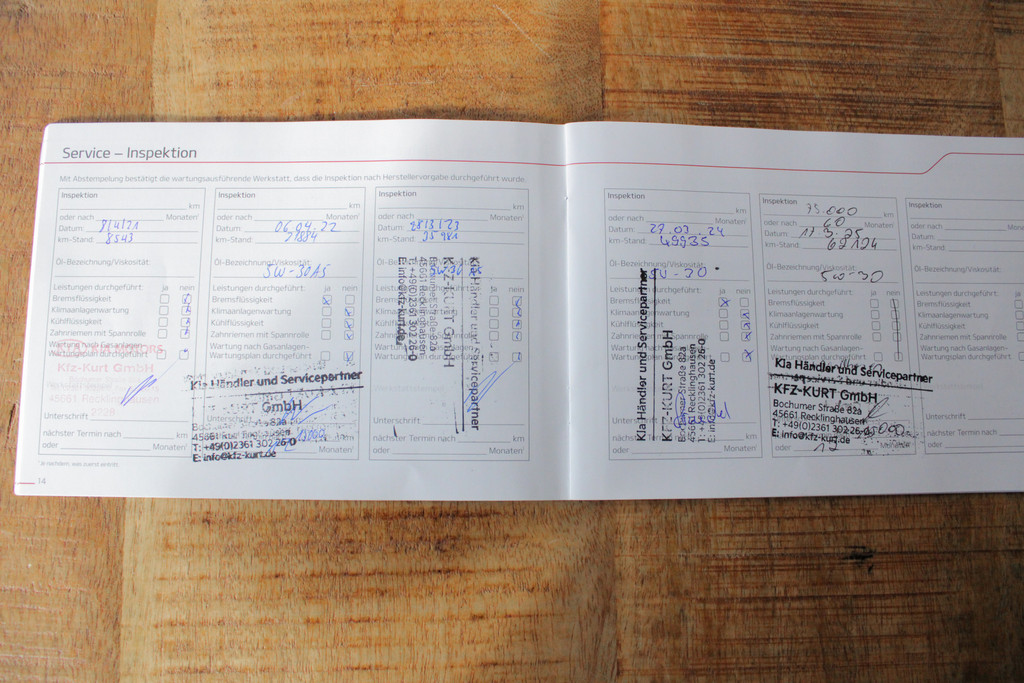 Service – Inspektion
Mit Abstempelung bestätigt die wartungsausführende Werkstatt, dass die Inspektion nach Herstellervorgabe durchgeführt wurde.
Inspektion
km
oder nach Monaten¹
Datum: 8/4/21
km-Stand: 8543
Öl-Bezeichnung/Viskosität:
Leistungen durchgeführt: ja nein
Bremsflüssigkeit
Klimaanlagenwartung
Kühlflüssigkeit
Zahnriemen mit Spannrolle
Wartung nach Gasanlagen-
Wartungsplan durchgeführt
Kfz-Kurt GmbH
45661 Recklinghausen
Unterschrift
nächster Termin nach km
oder Monaten¹
¹ Je nachdem, was zuerst eintritt.
14
Inspektion
km
oder nach Monaten¹
Datum: 06.04.22
km-Stand:
Öl-Bezeichnung/Viskosität:
5W-30 A5
Leistungen durchgeführt: ja nein
Bremsflüssigkeit
Klimaanlagenwartung
Kühlflüssigkeit
Zahnriemen mit Spannrolle
Wartung nach Gasanlagen-
Wartungsplan durchgeführt
Kia Händler und Servicepartner
GmbH
45661 Recklinghausen
T: +49(0)2361 302 26-0
E: info@kfz-kurt.de
Inspektion
km
oder nach Monaten¹
Datum: 28/3/23
km-Stand: 35981
Leistungen
Bremsflüssigkeit
Kühlflüssigkeit
Kia Händler und Servicepartner
KFZ-KURT GmbH
45661 Recklinghausen
T: +49(0)2361 302 26-0
E: info@kfz-kurt.de
Unterschrift
nächster Termin nach km
oder Monaten¹
Inspektion
km
oder nach Monaten¹
Datum: 27.03.24
km-Stand: 49935
Öl-Bezeichnung/Viskosität:
5W-30
Leistungen durchgeführt: ja nein
Bremsflüssigkeit
Klimaanlagenwartung
Kühlflüssigkeit
Kia Händler und Servicepartner
KFZ-KURT GmbH
Bochumer Straße 82a
45661 Recklinghausen
T: +49(0)2361 302 26-0
E: info@kfz-kurt.de
oder Monaten¹
Inspektion
75.000 km
oder nach 60 Monaten¹
Datum: 11.3.25
km-Stand: 69124
Öl-Bezeichnung/Viskosität:
5W-30
Leistungen durchgeführt: ja nein
Bremsflüssigkeit
Klimaanlagenwartung
Kühlflüssigkeit
Zahnriemen mit Spannrolle
Wartung nach Gasanlagen-
Wartungsplan durchgeführt
Kia Händler und Servicepartner
KFZ-KURT GmbH
Bochumer Straße 82a
45661 Recklinghausen
T: +49(0)2361 302 26-0
E: info@kfz-kurt.de
oder 12 Monaten¹
Inspektion
oder nach
Datum:
km-Stand:
Öl-Bezeichnung/Viskosität:
Leistungen durchgeführt:
Bremsflüssigkeit
Klimaanlagenwartung
Kühlflüssigkeit
Zahnriemen mit Spannrolle
Wartung nach Gasanlagen-
Wartungsplan durchgeführt
Unterschrift
nächster Termin nach
oder